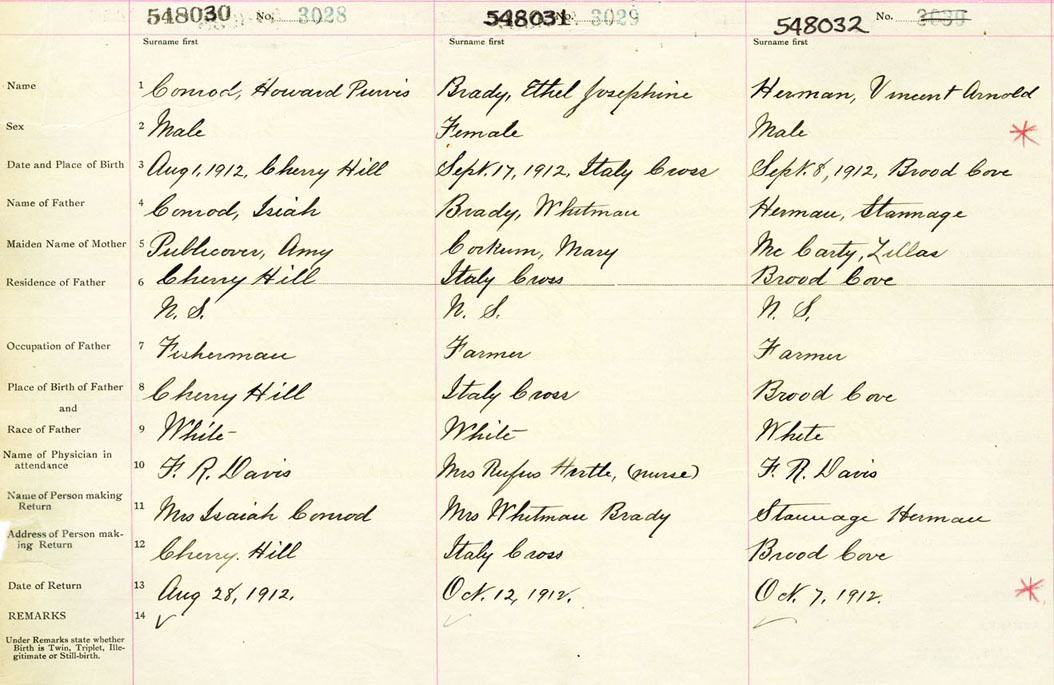 548030 No. 3028 548031 No. 3029 548032 No. 3030
Surname first Surname first Surname first
Name 1 Conrod, Howard Purvis Brady, Ethel Josephine Herman, Vincent Arnold
Sex 2 Male Female Male *
Date and Place of Birth 3 Aug 1, 1912, Cherry Hill Sept. 17, 1912, Italy Cross Sept. 8, 1912, Brood Cove
Name of Father 4 Conrod, Isiah Brady, Whitman Herman, Stannage
Maiden Name of Mother 5 Publicover, Amy Corkum, Mary Mc Carty, Zillas
Residence of Father 6 Cherry Hill Italy Cross Brood Cove
N. S. N. S. N. S.
Occupation of Father 7 Fisherman Farmer Farmer
Place of Birth of Father 8 Cherry Hill Italy Cross Brood Cove
and
Race of Father 9 White White White
Name of Physician in
attendance 10 F. R. Davis Mrs Rufus Hirtle, (nurse) F. R. Davis
Name of Person making
Return 11 Mrs Isaiah Conrod Mrs Whitman Brady Stannage Herman
Address of Person mak-
ing Return 12 Cherry. Hill Italy Cross Brood Cove
Date of Return 13 Aug 28, 1912. Oct. 12, 1912. Oct. 7, 1912. *
REMARKS 14 ✓ ✓ ✓
Under Remarks state whether
Birth is Twin, Triplet, Ille-
gitimate or Still-birth.